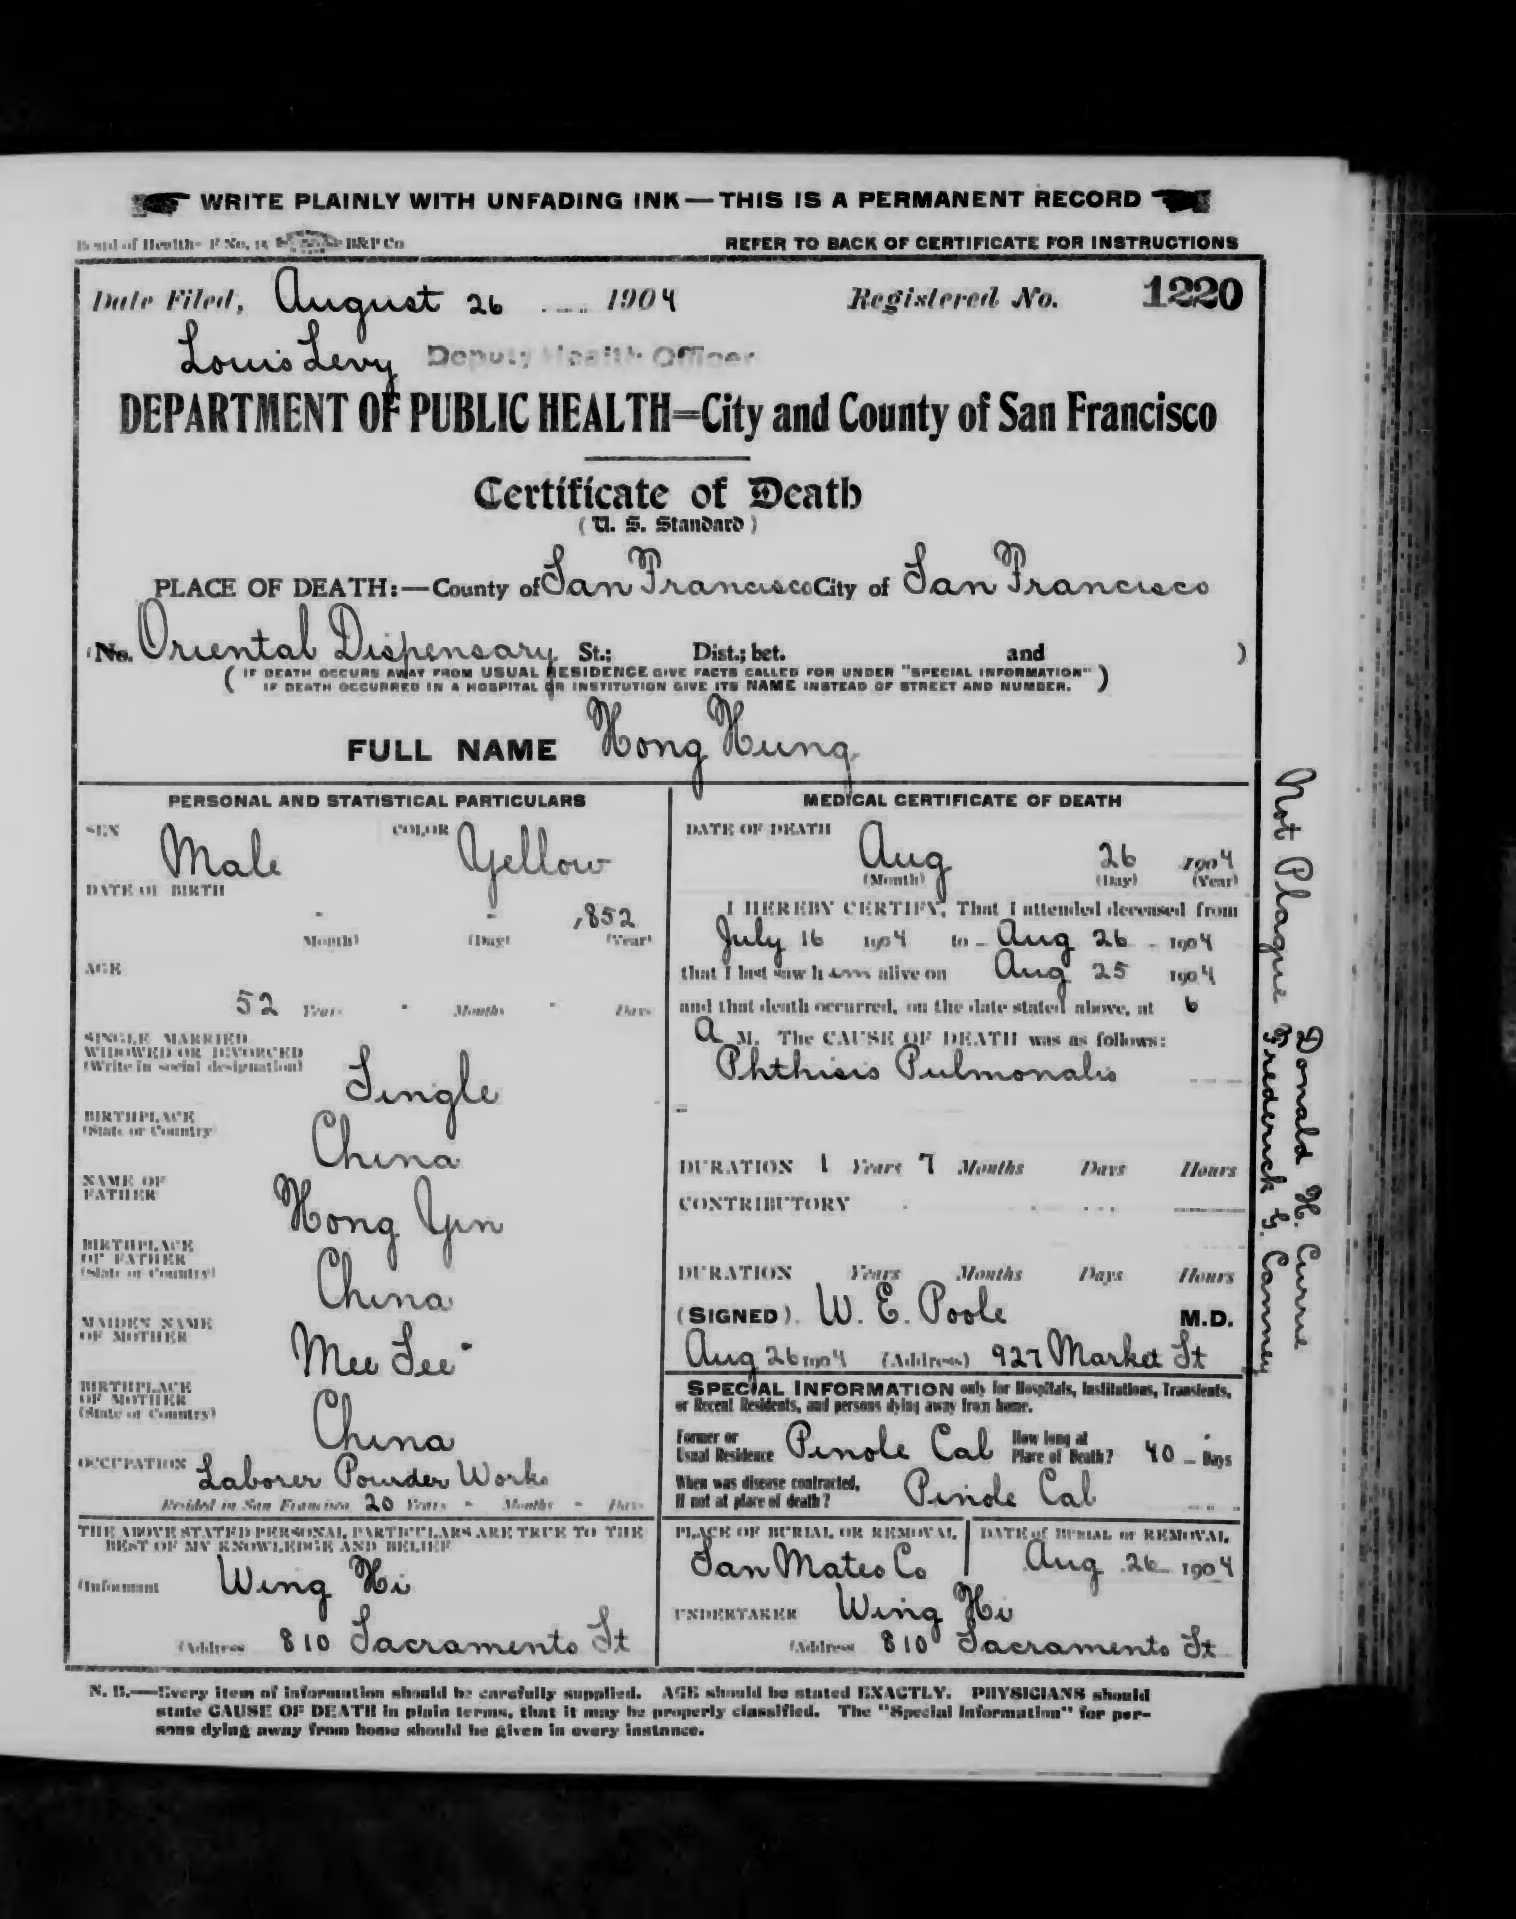 WRITE PLAINLY WITH UNFADING INK — THIS IS A PERMANENT RECORD
Board of Health- F No. 15 B&P Co
REFER TO BACK OF CERTIFICATE FOR INSTRUCTIONS
Date Filed, August 26 1904 Registered No. 1220
Louis Levy Deputy Health Officer
DEPARTMENT OF PUBLIC HEALTH=City and County of San Francisco
Certificate of Death
(U. S. Standard)
PLACE OF DEATH:—County of San Francisco City of San Francisco
(No. Oriental Dispensary St.; Dist.; bet. and )
(IF DEATH OCCURS AWAY FROM USUAL RESIDENCE GIVE FACTS CALLED FOR UNDER "SPECIAL INFORMATION")
IF DEATH OCCURRED IN A HOSPITAL OR INSTITUTION GIVE ITS NAME INSTEAD OF STREET AND NUMBER.
FULL NAME Hong Hung
PERSONAL AND STATISTICAL PARTICULARS
SEX Male COLOR Yellow
DATE OF BIRTH
- - 1852
(Month) (Day) (Year)
AGE
52 Years - Months - Days
SINGLE MARRIED
WIDOWED OR DIVORCED
(Write in social designation)
Single
BIRTHPLACE
(State or Country)
China
NAME OF
FATHER
Hong Yin
BIRTHPLACE
OF FATHER
(State or Country)
China
MAIDEN NAME
OF MOTHER
Mee Lee
BIRTHPLACE
OF MOTHER
(State or Country)
China
OCCUPATION Laborer Powder Works
Resided in San Francisco 20 Years - Months - Days
THE ABOVE STATED PERSONAL PARTICULARS ARE TRUE TO THE
BEST OF MY KNOWLEDGE AND BELIEF
(Informant Wing Hi
(Address 810 Sacramento St
MEDICAL CERTIFICATE OF DEATH
DATE OF DEATH
Aug 26 1904
(Month) (Day) (Year)
I HEREBY CERTIFY, That I attended deceased from
July 16 1904 to Aug 26 1904
that I last saw him alive on Aug 25 1904
and that death occurred, on the date stated above, at 6
A M. The CAUSE OF DEATH was as follows:
Phthisis Pulmonalis
DURATION 1 Years 7 Months Days Hours
CONTRIBUTORY
DURATION Years Months Days Hours
(SIGNED) W. E. Poole M.D.
Aug 26 1904 (Address) 927 Market St
SPECIAL INFORMATION only for Hospitals, Institutions, Transients,
or Recent Residents, and persons dying away from home.
Former or
Usual Residence Pinole Cal
How long at
Place of Death? 40 Days
When was disease contracted,
If not at place of death? Pinole Cal
PLACE OF BURIAL OR REMOVAL
San Mateo Co
DATE of BURIAL or REMOVAL
Aug 26 1904
UNDERTAKER Wing Hi
(Address 810 Sacramento St
N. B.—Every item of information should be carefully supplied. AGE should be stated EXACTLY. PHYSICIANS should
state CAUSE OF DEATH in plain terms, that it may be properly classified. The "Special Information" for per-
sons dying away from home should be given in every instance.
Not Plague
Donald H. Currie
Frederick G. Canney